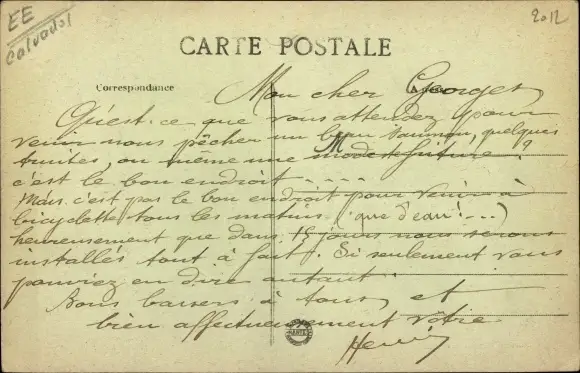 EE
Calvados
2012
CARTE POSTALE
Correspondance
Mon cher Georges,
Qu'est-ce que vous attendez pour
venir nous pêcher un beau saumon, quelques
truites, ou même une Modeste friture ?
c'est le bon endroit - - - -
Mais c'est pas le bon endroit pour venir à
bicyclette tous les matins (que d'eau! - - -)
heureusement que dans 15 jours nous serons
installés tout à fait. Si seulement vous
pouviez en dire autant.
Bons baisers à tous, et
bien affectueusement vôtre
Henri